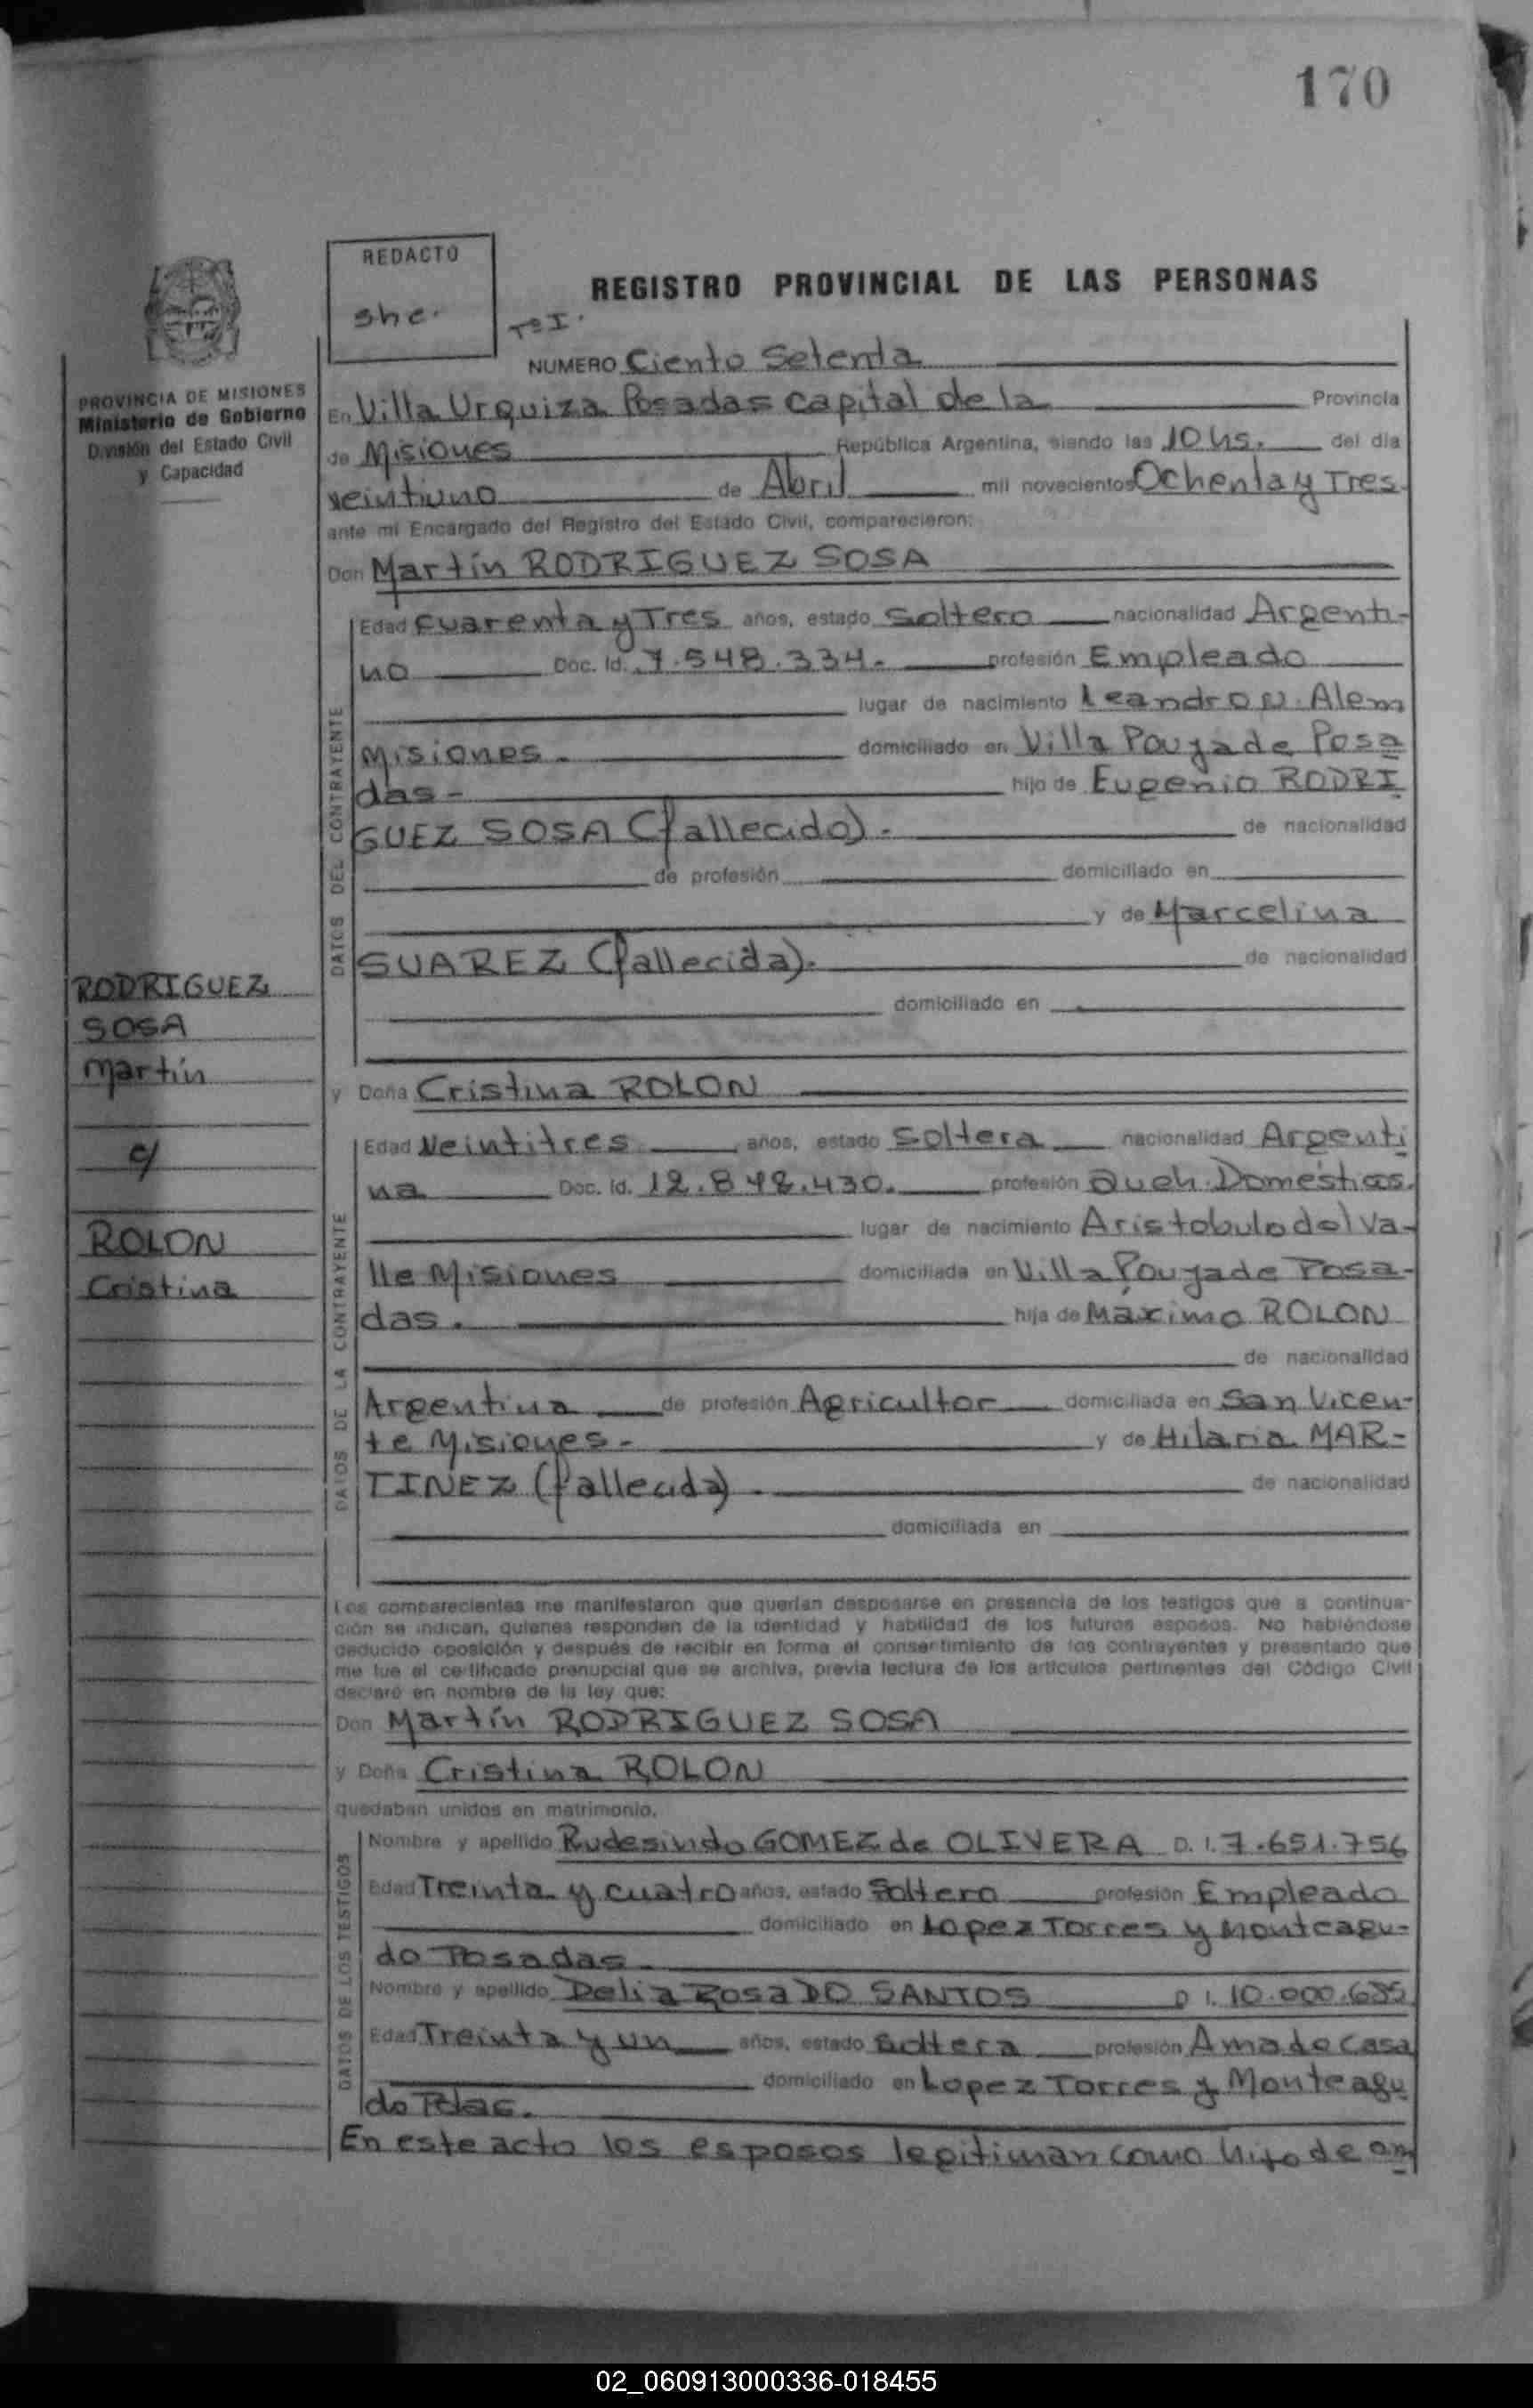 170
REDACTO
she.
REGISTRO PROVINCIAL DE LAS PERSONAS
Tº I.
NUMERO Ciento Setenta
PROVINCIA DE MISIONES
Ministerio de Gobierno
División del Estado Civil
y Capacidad
En Villa Urquiza Posadas capital de la Provincia
de Misiones República Argentina, siendo las 10 hs. del día
veintiuno de Abril mil novecientos Ochenta y Tres.
ante mi Encargado del Registro del Estado Civil, comparecieron:
Don Martín RODRIGUEZ SOSA
DATOS DEL CONTRAYENTE
Edad cuarenta y Tres años, estado Soltero nacionalidad Argenti-
no Doc. Id. 7.548.334. profesión Empleado
lugar de nacimiento Leandro N. Alem
Misiones. domiciliado en Villa Poujade Posa
das- hijo de Eugenio RODRI
GUEZ SOSA (fallecido). de nacionalidad
de profesión domiciliado en
y de Marcelina
SUAREZ (fallecida). de nacionalidad
domiciliado en
RODRIGUEZ
SOSA
Martín
c/
ROLON
Cristina
y Doña Cristina ROLON
DATOS DE LA CONTRAYENTE
Edad Veintitres años, estado Soltera nacionalidad Argenti
na Doc. Id. 12.848.430. profesión Queh. Domésticos.
lugar de nacimiento Aristobulo del Va-
lle Misiones domiciliada en Villa Poujade Posa-
das. hija de Maximo ROLON
de nacionalidad
Argentina de profesión Agricultor domiciliada en San Vicen-
te Misiones. y de Hilaria MAR-
TINEZ (fallecida). de nacionalidad
domiciliada en
Los comparecientes me manifestaron que querían desposarse en presencia de los testigos que a continua-
ción se indican, quienes responden de la identidad y habilidad de los futuros esposos. No habiéndose
deducido oposición y después de recibir en forma el consentimiento de los contrayentes y presentado que
me fue el certificado prenupcial que se archiva, previa lectura de los artículos pertinentes del Código Civil
declaro en nombre de la ley que:
Don Martín RODRIGUEZ SOSA
y Doña Cristina ROLON
quedaban unidos en matrimonio.
DATOS DE LOS TESTIGOS
Nombre y apellido Rudesindo GOMEZ de OLIVERA D. I. 7.651.756
Edad Treinta y cuatro años, estado Soltero profesión Empleado
domiciliado en Lopez Torres y Monteagu-
do Posadas
Nombre y apellido Delia Rosa DO SANTOS D I. 10.000.685
Edad Treinta y un años, estado Soltera profesión Ama de casa
domiciliado en Lopez Torres y Monteagu
do Pdas.
En este acto los esposos legitiman como hijo de am
02_060913000336-018455